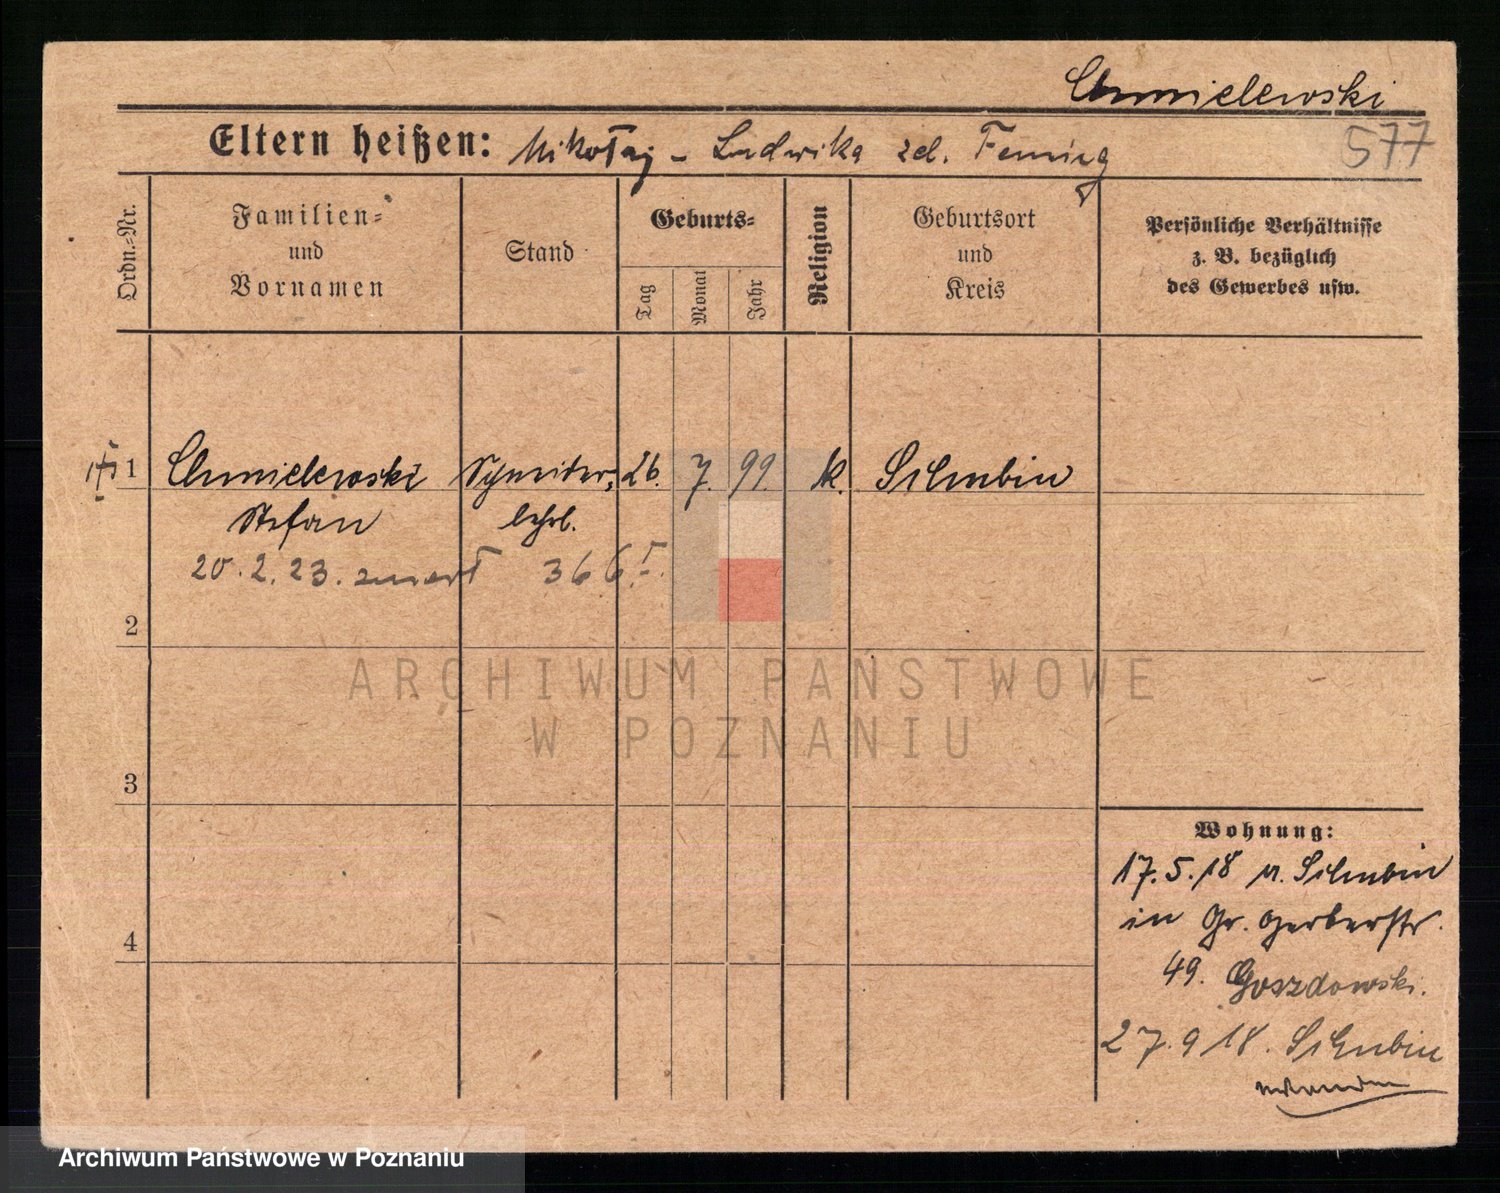 Chmielewski
577
Eltern heißen: Mikołaj - Ludwika zd.
Ordn.-Nr.
Familien-
und
Vornamen
Stand
Geburts-
Tag
Monat
Jahr
Religion
Geburtsort
und
Kreis
Persönliche Verhältnisse
z. B. bezüglich
des Gewerbes usw.
1 Chmielewski Schneider- 26. 7. 99. k. Schubin
Stefan lehrl.
20.2.23. zmarł 366
2
3
4
Wohnung:
17.5.18 v. Schubin
in Gr. Gerberstr.
49. Goszdowski.
27.9.18. Schubin
ARCHIWUM PAŃSTWOWE
W POZNANIU
Archiwum Państwowe w Poznaniu